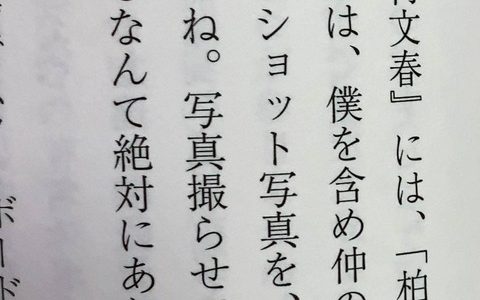 文春』には、「柏
は、僕を含め仲の
ショット写真を、
ね。写真撮らせ
なんて絶対にあ
ボード